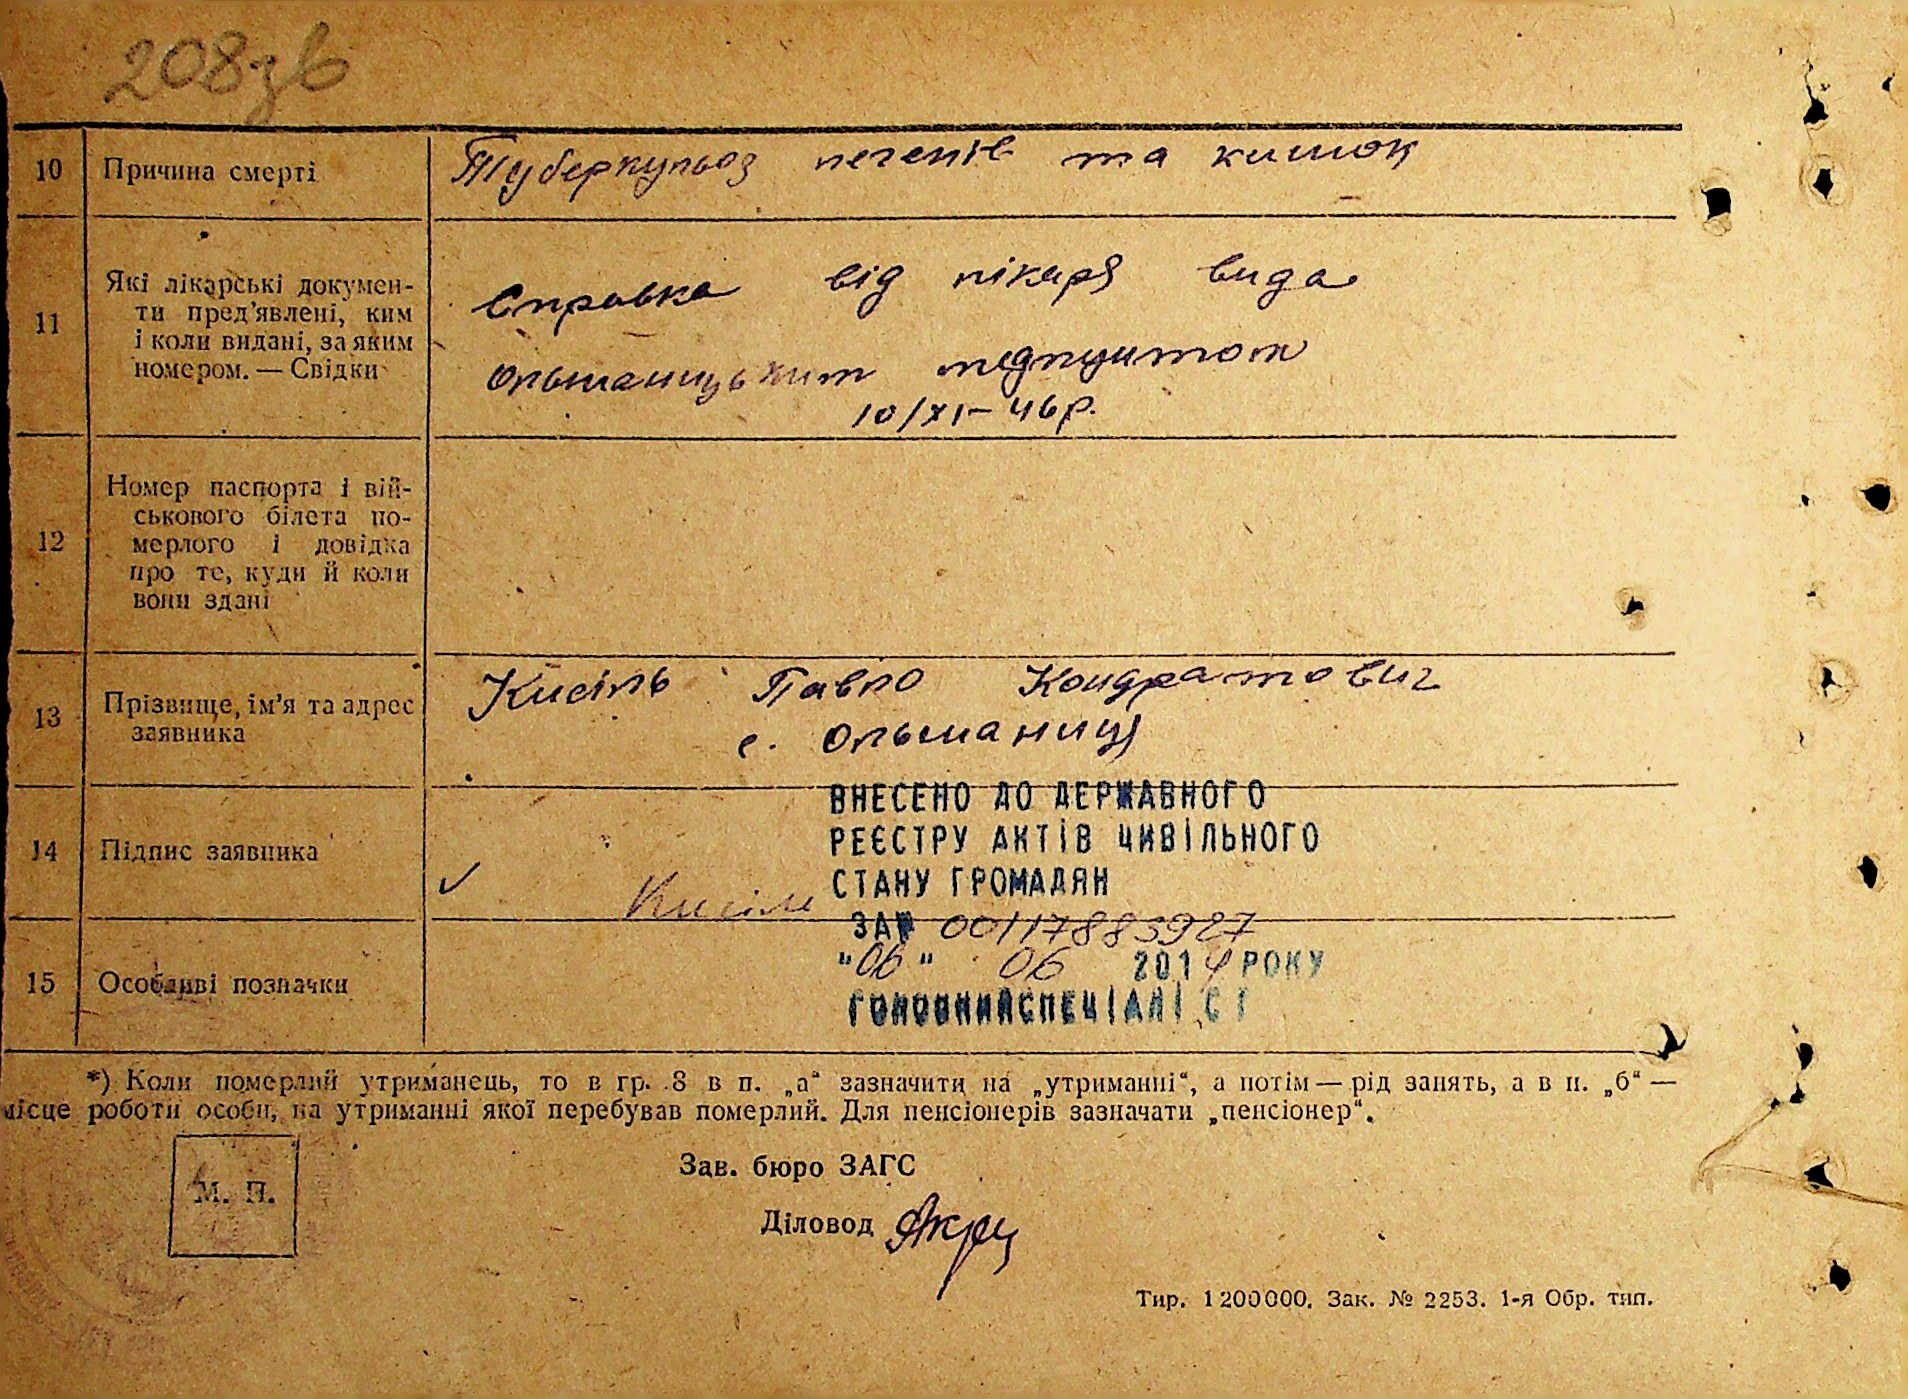 208зв
10 Причина смерті Туберкульоз легенів та кишок
11 Які лікарські докумен-
ти пред'явлені, ким
і коли видані, за яким
номером. — Свідки
Справка від лікаря вида
Ольшаницьким медпунктом
10/XI-46р.
12 Номер паспорта і вій-
ськового білета по-
мерлого і довідка
про те, куди й коли
вони здані
13 Прізвище, ім'я та адрес
заявника
Кисіль Павло Кондратович
с. Ольшаниця
14 Підпис заявника
Кисіль
ВНЕСЕНО ДО ДЕРЖАВНОГО
РЕЄСТРУ АКТІВ ЦИВІЛЬНОГО
СТАНУ ГРОМАДЯН
ЗА№ 00117883927
"06" 06 2014 РОКУ
ГОЛОВНИЙ СПЕЦІАЛІСТ
15 Особливі позначки
*) Коли померлий утриманець, то в гр. 8 в п. „а“ зазначити на „утриманні“, а потім — рід занять, а в п. „б“ —
місце роботи особи, на утриманні якої перебував померлий. Для пенсіонерів зазначати „пенсіонер“.
М. П.
Зав. бюро ЗАГС
Діловод
Тир. 1200000. Зак. № 2253. 1-я Обр. тип.